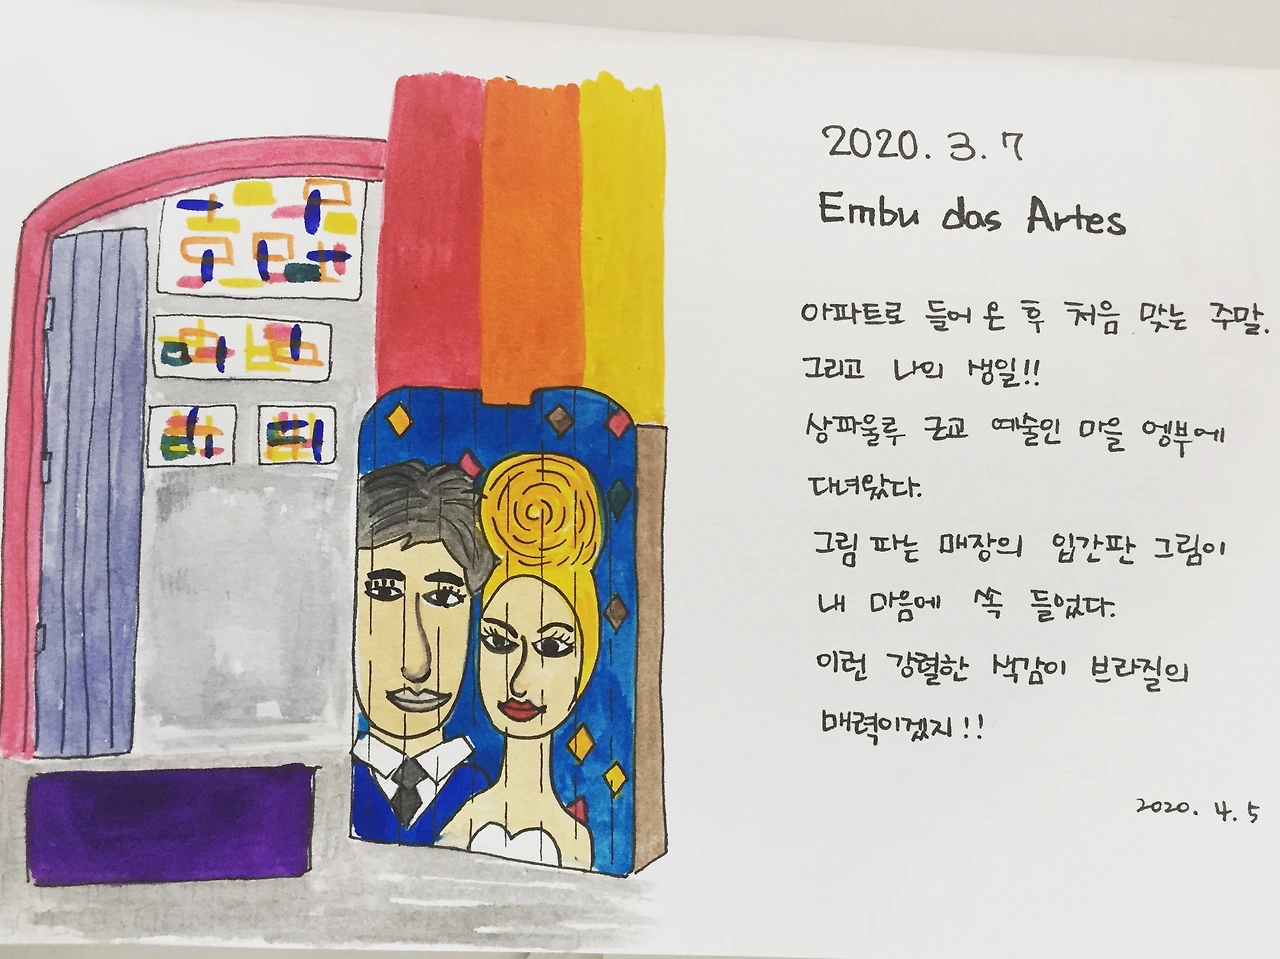 2020. 3. 7
Embu das Artes
아파트로 들어 온 후 처음 맞는 주말.
그리고 나의 생일!!
상파울루 근교 예술인 마을 엥부에
다녀왔다.
그림 파는 매장의 입간판 그림이
내 마음에 쏙 들었다.
이런 강렬한 색감이 브라질의
매력이겠지!!
2020. 4. 5